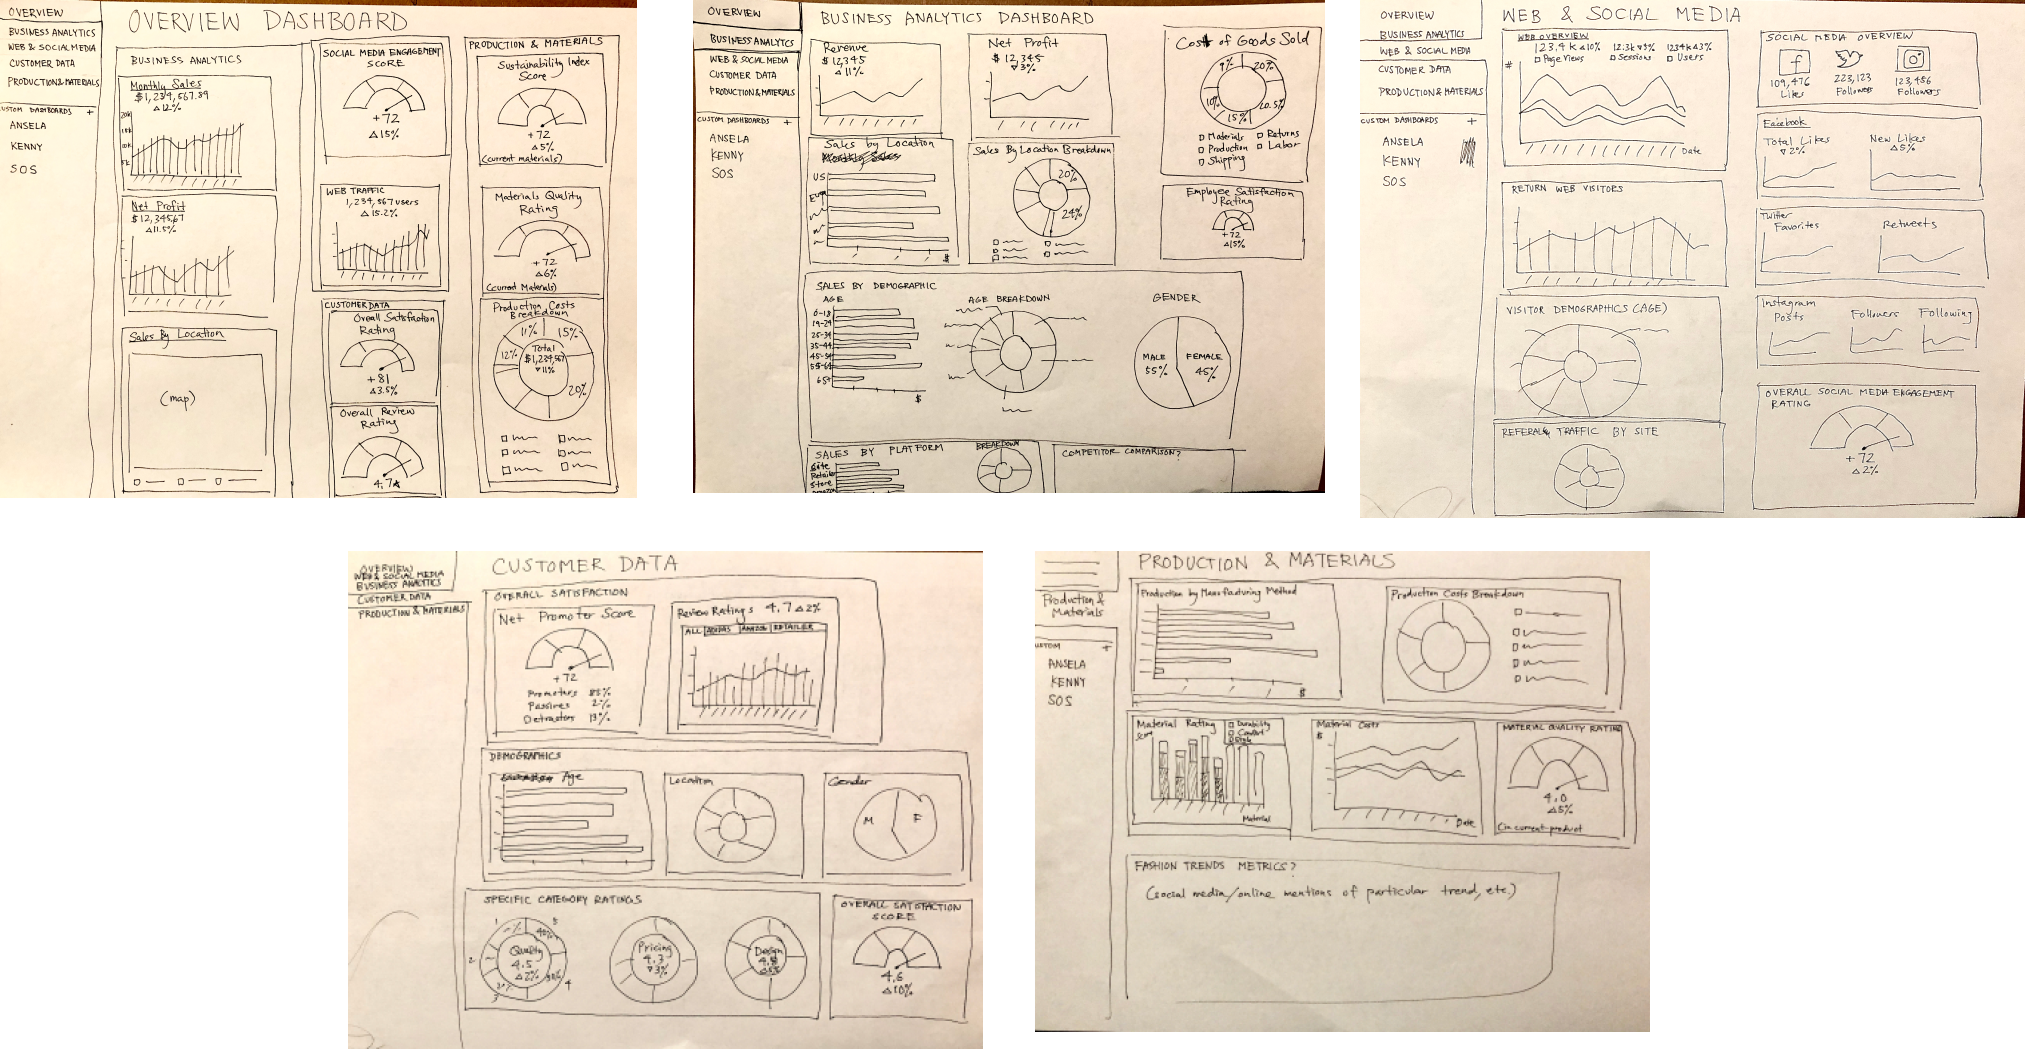 OVERVIEW
BUSINESS ANALYTICS
WEB & SOCIAL MEDIA
CUSTOMER DATA
PRODUCTION & MATERIALS
CUSTOM DASHBOARDS +
ANSELA
KENNY
SOS
OVERVIEW DASHBOARD
BUSINESS ANALYTICS
Monthly Sales
$1,234,567.89
△12%
20k
15k
10k
5k
Net Profit
$12,345.67
△11.5%
Sales By Location
(map)
SOCIAL MEDIA ENGAGEMENT
SCORE
+72
△15%
WEB TRAFFIC
1,234,567 users
△15.2%
CUSTOMER DATA
Overall Satisfaction
Rating
+81
△3.5%
Overall Review
Rating
4.7★
PRODUCTION & MATERIALS
Sustainability Index
Score
+72
△5%
(current materials)
Materials Quality
Rating
+72
△6%
(current Materials)
Production Costs
Breakdown
11% 15%
12%
Total
$1,234,567
▽11%
20%
OVERVIEW
BUSINESS ANALYTCS
WEB & SOCIAL MEDIA
CUSTOMER DATA
PRODUCTION & MATERIALS
CUSTOM DASHBOARDS +
ANSELA
KENNY
SOS
BUSINESS ANALYTICS DASHBOARD
Revenue
$12,345
△11%
Net Profit
$12,345
▽3%
Cost of Goods Sold
9% 20%
10% 20.5%
15%
Materials Returns
Production Labor
Shipping
Sales by Location
US
$
Sales By Location Breakdown
20%
24%
Employee Satisfaction
Rating
+72
△15%
SALES BY DEMOGRAPHIC
AGE
0-18
19-24
25-34
35-44
45-54
55-64
65+
$
AGE BREAKDOWN
GENDER
MALE
55%
FEMALE
45%
SALES BY PLATFORM
Site
Retailer
Store
BREAKDOWN
COMPETITOR COMPARISON?
OVERVIEW
BUSINESS ANALYTICS
WEB & SOCIAL MEDIA
CUSTOMER DATA
PRODUCTION & MATERIALS
CUSTOM DASHBOARDS +
ANSELA
KENNY
SOS
WEB & SOCIAL MEDIA
WEB OVERVIEW
123.4k △10% 12.3k ▽5% 1234k △3%
Page Views Sessions Users
#
Date
RETURN WEB VISITORS
VISITOR DEMOGRAPHICS (AGE)
REFERAL TRAFFIC BY SITE
SOCIAL MEDIA OVERVIEW
f
109,476 223,123 123,456
Likes Followers Followers
Facebook
Total Likes
▽2%
New Likes
△5%
Twitter
Favorites Retweets
Instagram
Posts Followers Following
OVERALL SOCIAL MEDIA ENGAGEMENT
RATING
+72
△2%
OVERVIEW
WEB & SOCIAL MEDIA
BUSINESS ANALYTICS
CUSTOMER DATA
PRODUCTION & MATERIALS
CUSTOMER DATA
OVERALL SATISFACTION
Net Promoter Score
+72
Promoters 85%
Passives 2%
Detractors 13%
Review Ratings 4.7 △2%
ALL ADIDAS AMAZON RETAILER
DEMOGRAPHICS
Age
Location
Gender
M F
SPECIFIC CATEGORY RATINGS
1
2
3
4
5
Quality
4.5
△2%
Pricing
4.3
▽3%
Design
4.8
OVERALL SATISFACTION
SCORE
4.6
△10%
Production &
Materials
CUSTOM +
ANSELA
KENNY
SOS
PRODUCTION & MATERIALS
Production by Manufacturing Method
$
Production Costs Breakdown
Material Rating
Score
Durability
Comfort
Style
Material
Material Costs
$
Date
MATERIAL QUALITY RATING
4.0
△5%
(in current product
FASHION TRENDS METRICS?
(social media/online mentions of particular trend, etc.)